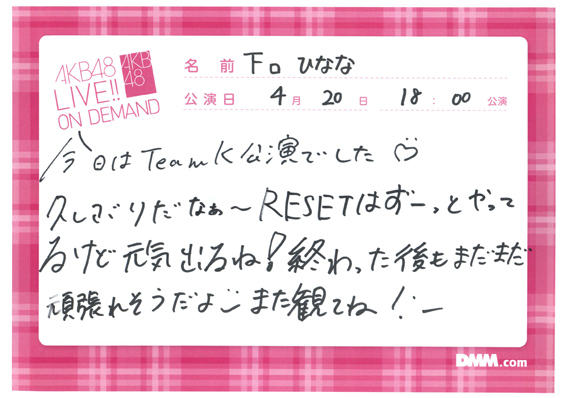 AKB48
LIVE!!
ON DEMAND
AKB
48
名前 下口 ひなな
公演日 4月 20日 18:00 公演
今日はTeamK公演でした♡
久しぶりだなぁ〜RESETはずーっとやって
るけど元気出るね!終わった後もまだまだ
頑張れそうだよ また観てね!
DMM.com